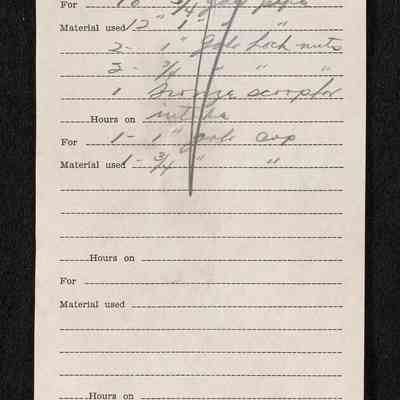 For 10" 3/4 galv pipe
Material used 12" 1" " "
2- 1" Galv Lock nuts
2- 3/4 " " "
1 Bronze
Hours on
For 1- 1" galv cap
Material used 1- 3/4 " "
Hours on
For
Material used
Hours on